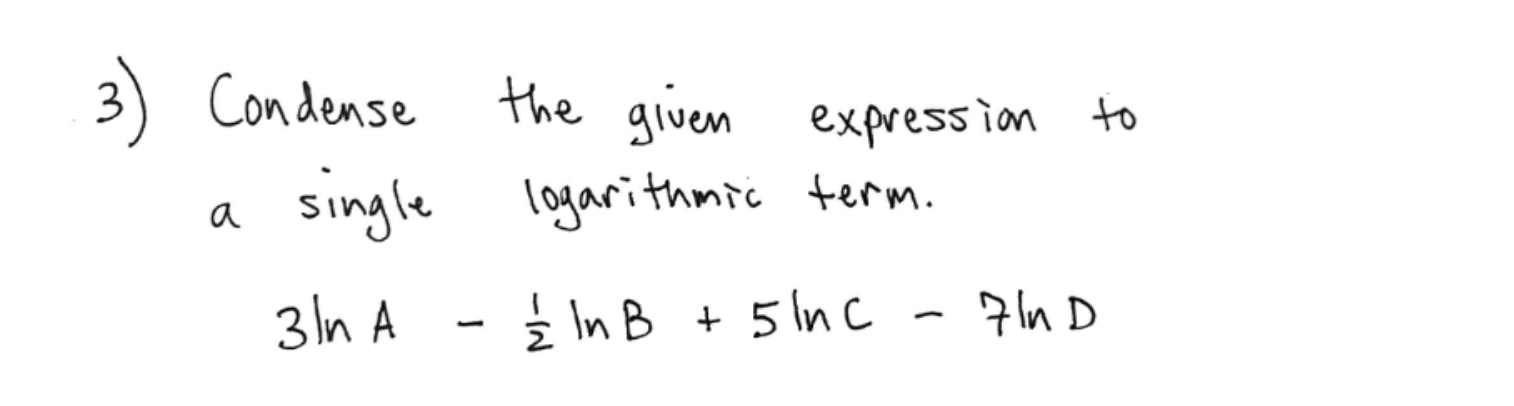 3) Condense the given expression to
a single logarithmic term.
3 ln A - 1/2 ln B + 5 ln C - 7 ln D